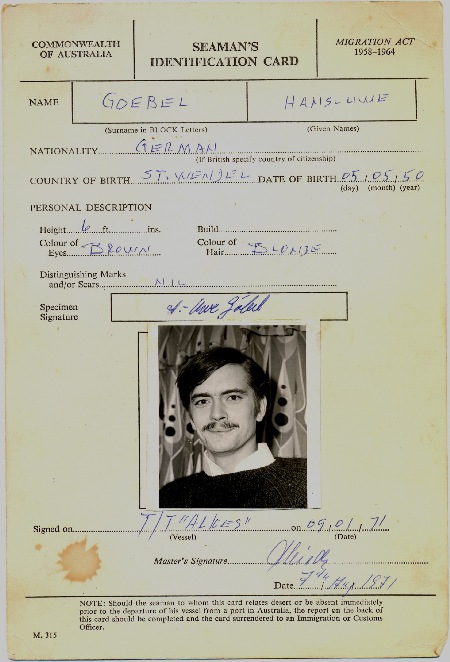 COMMONWEALTH
OF AUSTRALIA
SEAMAN'S
IDENTIFICATION CARD
MIGRATION ACT
1958–1964
NAME GOEBEL HANS-UWE
(Surname in BLOCK Letters) (Given Names)
NATIONALITY GERMAN
(If British specify country of citizenship)
COUNTRY OF BIRTH ST. WENDEL DATE OF BIRTH 05.05.50
(day) (month) (year)
PERSONAL DESCRIPTION
Height 6 ft. ins. Build
Colour of Eyes BROWN Colour of Hair BLONDE
Distinguishing Marks
and/or Scars NIL
Specimen
Signature H.-Uwe Göbel
Signed on T/T "ALKES" on 09.01.71
(Vessel) (Date)
Master's Signature
Date 7th Aug 1971
NOTE: Should the seaman to whom this card relates desert or be absent immediately
prior to the departure of his vessel from a port in Australia, the report on the back of
this card should be completed and the card surrendered to an Immigration or Customs
Officer.
M. 315